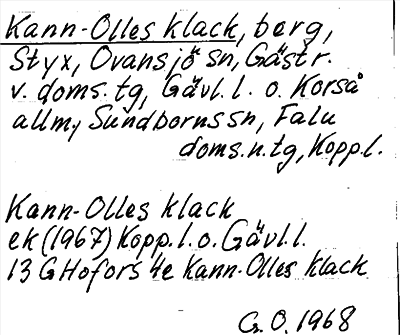 Kann-Olles klack, berg,
Styx, Ovansjö sn, Gästr.
v. doms. tg, Gävl. l. o. Korså
allm., Sundborns sn, Falu
doms. n. tg, Kopp. l.
Kann-Olles klack
ek (1967) Kopp. l. o. Gävl. l.
13 G Hofors 4e Kann-Olles klack
G. O. 1968